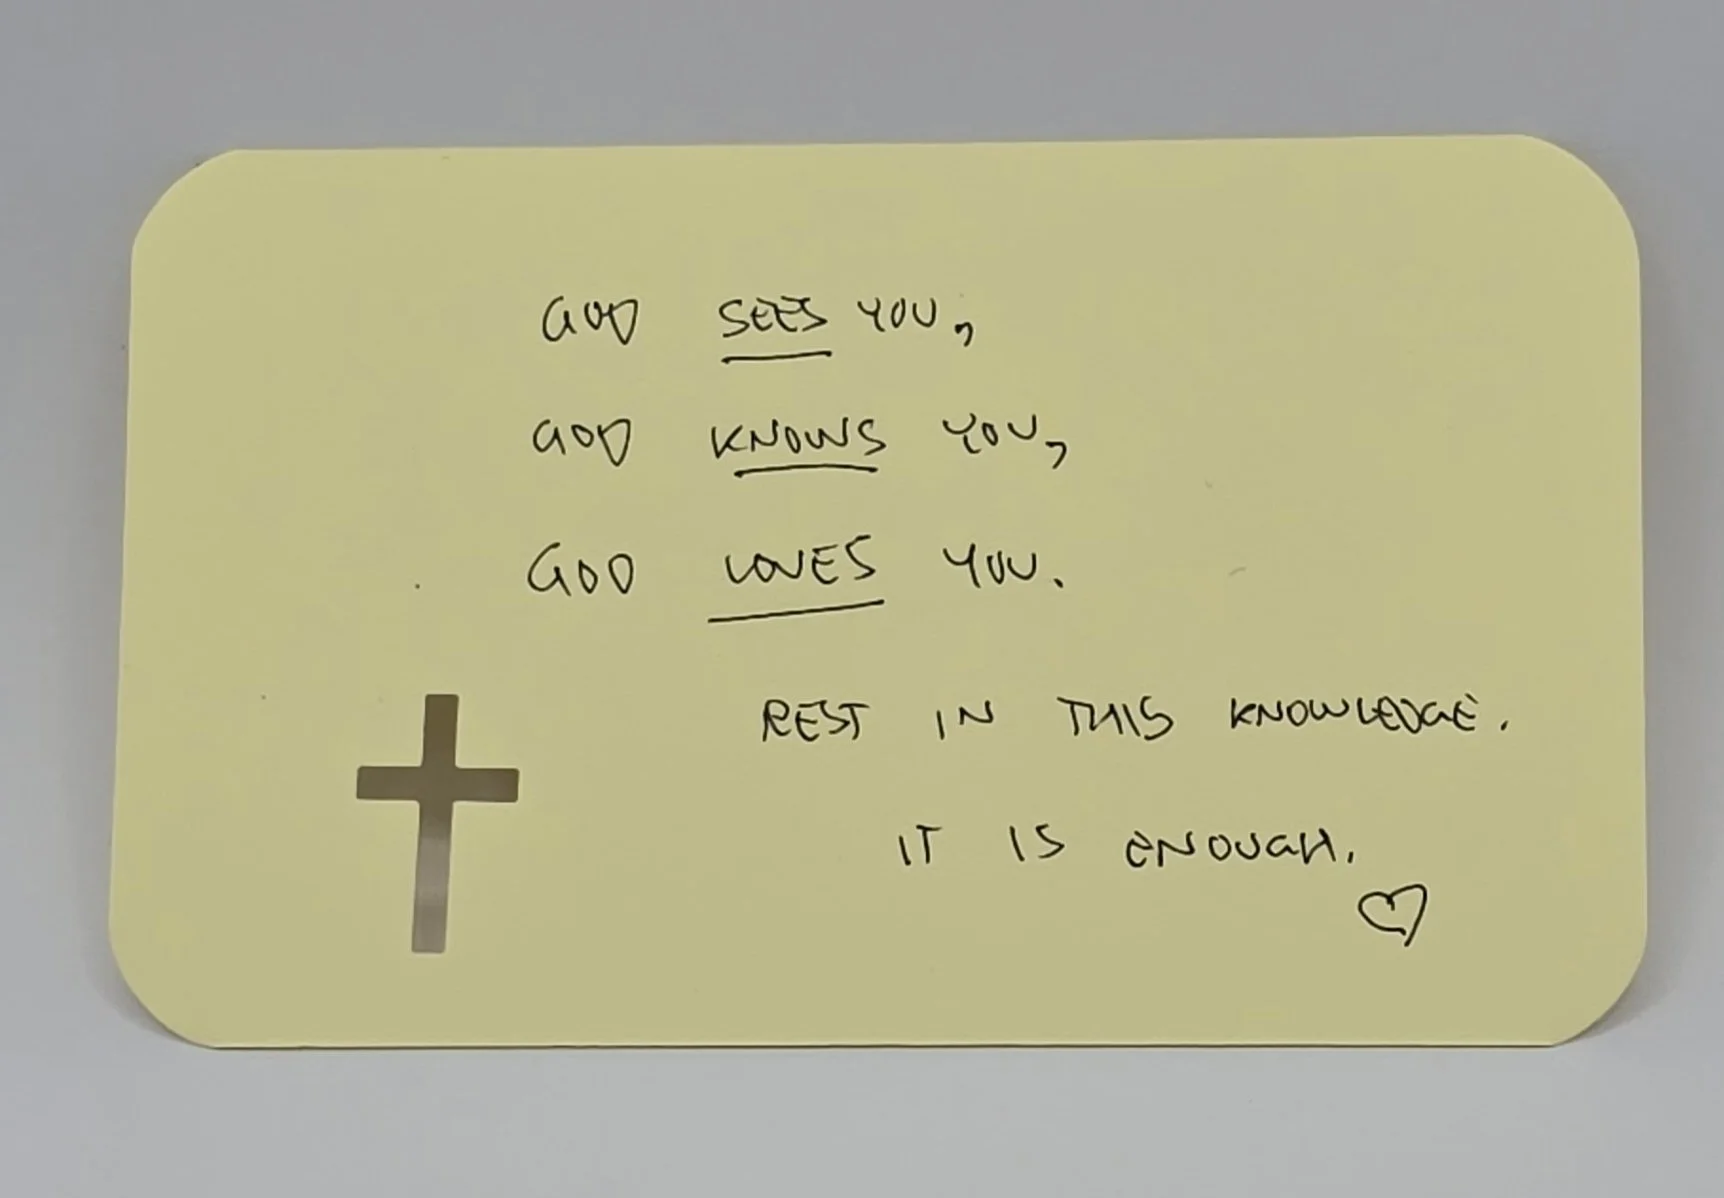 GOD SEES YOU,
GOD KNOWS YOU,
GOD LOVES YOU.
REST IN THIS KNOWLEDGE.
IT IS ENOUGH.